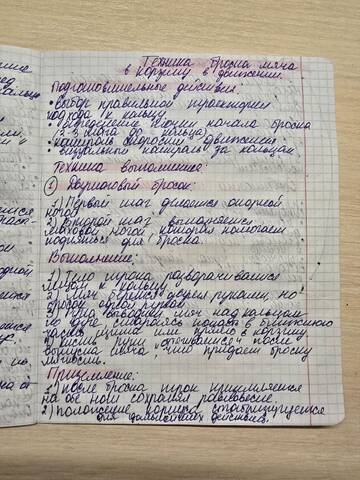 Техника броска мяча
в корзину в движении.
Подготовительные действия:
• выбор правильной траектории
подхода к кольцу
• определение точки начала броска
(2-3 шага до кольца)
• контроль скорости движения
• визуальный контроль за кольцом
Техника выполнения:
① Двушаговый бросок:
1) Первый шаг делается опорной
ногой
2) Второй шаг выполняется
маховой ногой которая помогает
подняться для броска.
Выполнение:
1) Тело игрока разворачивается
лицом к кольцу
2) Мяч берется двумя руками, но
бросок одной рукой
3) Рука выводит мяч над кольцом
по дуге стараясь попасть в ближнюю
часть щита или прямо в корзину
4) Кисть руки после
выпуска мяча, что придает броску
Приземление:
1) после броска игрок приземляется
на обе ноги сохраняя равновесие.
2) положение корпуса стабилизируется
для дальнейших действий.